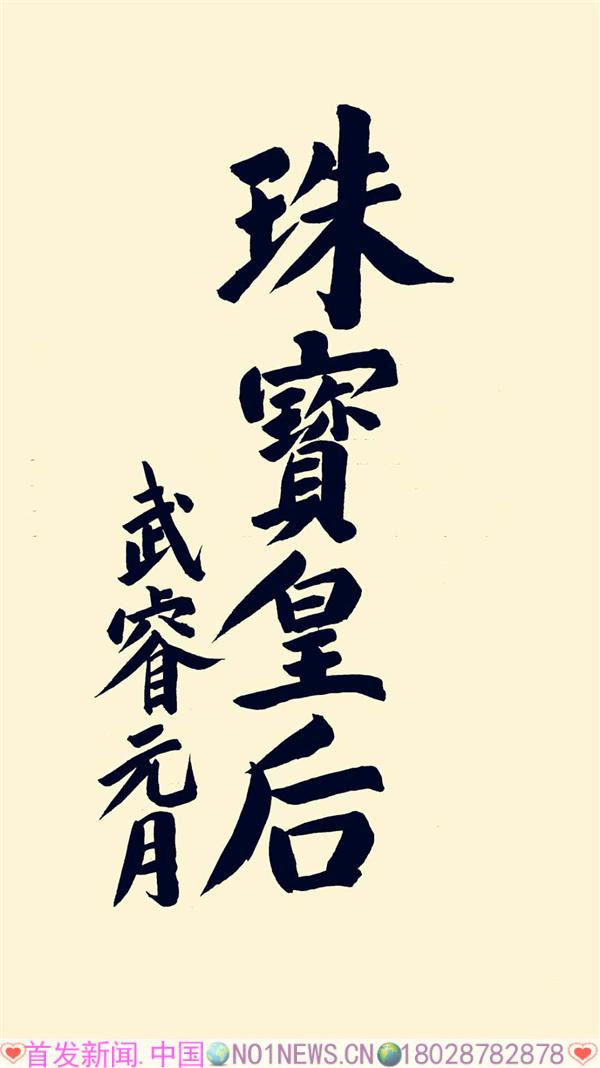 珠寶皇后
武睿元月
首发新闻.中国NO1NEWS.CN18028782878